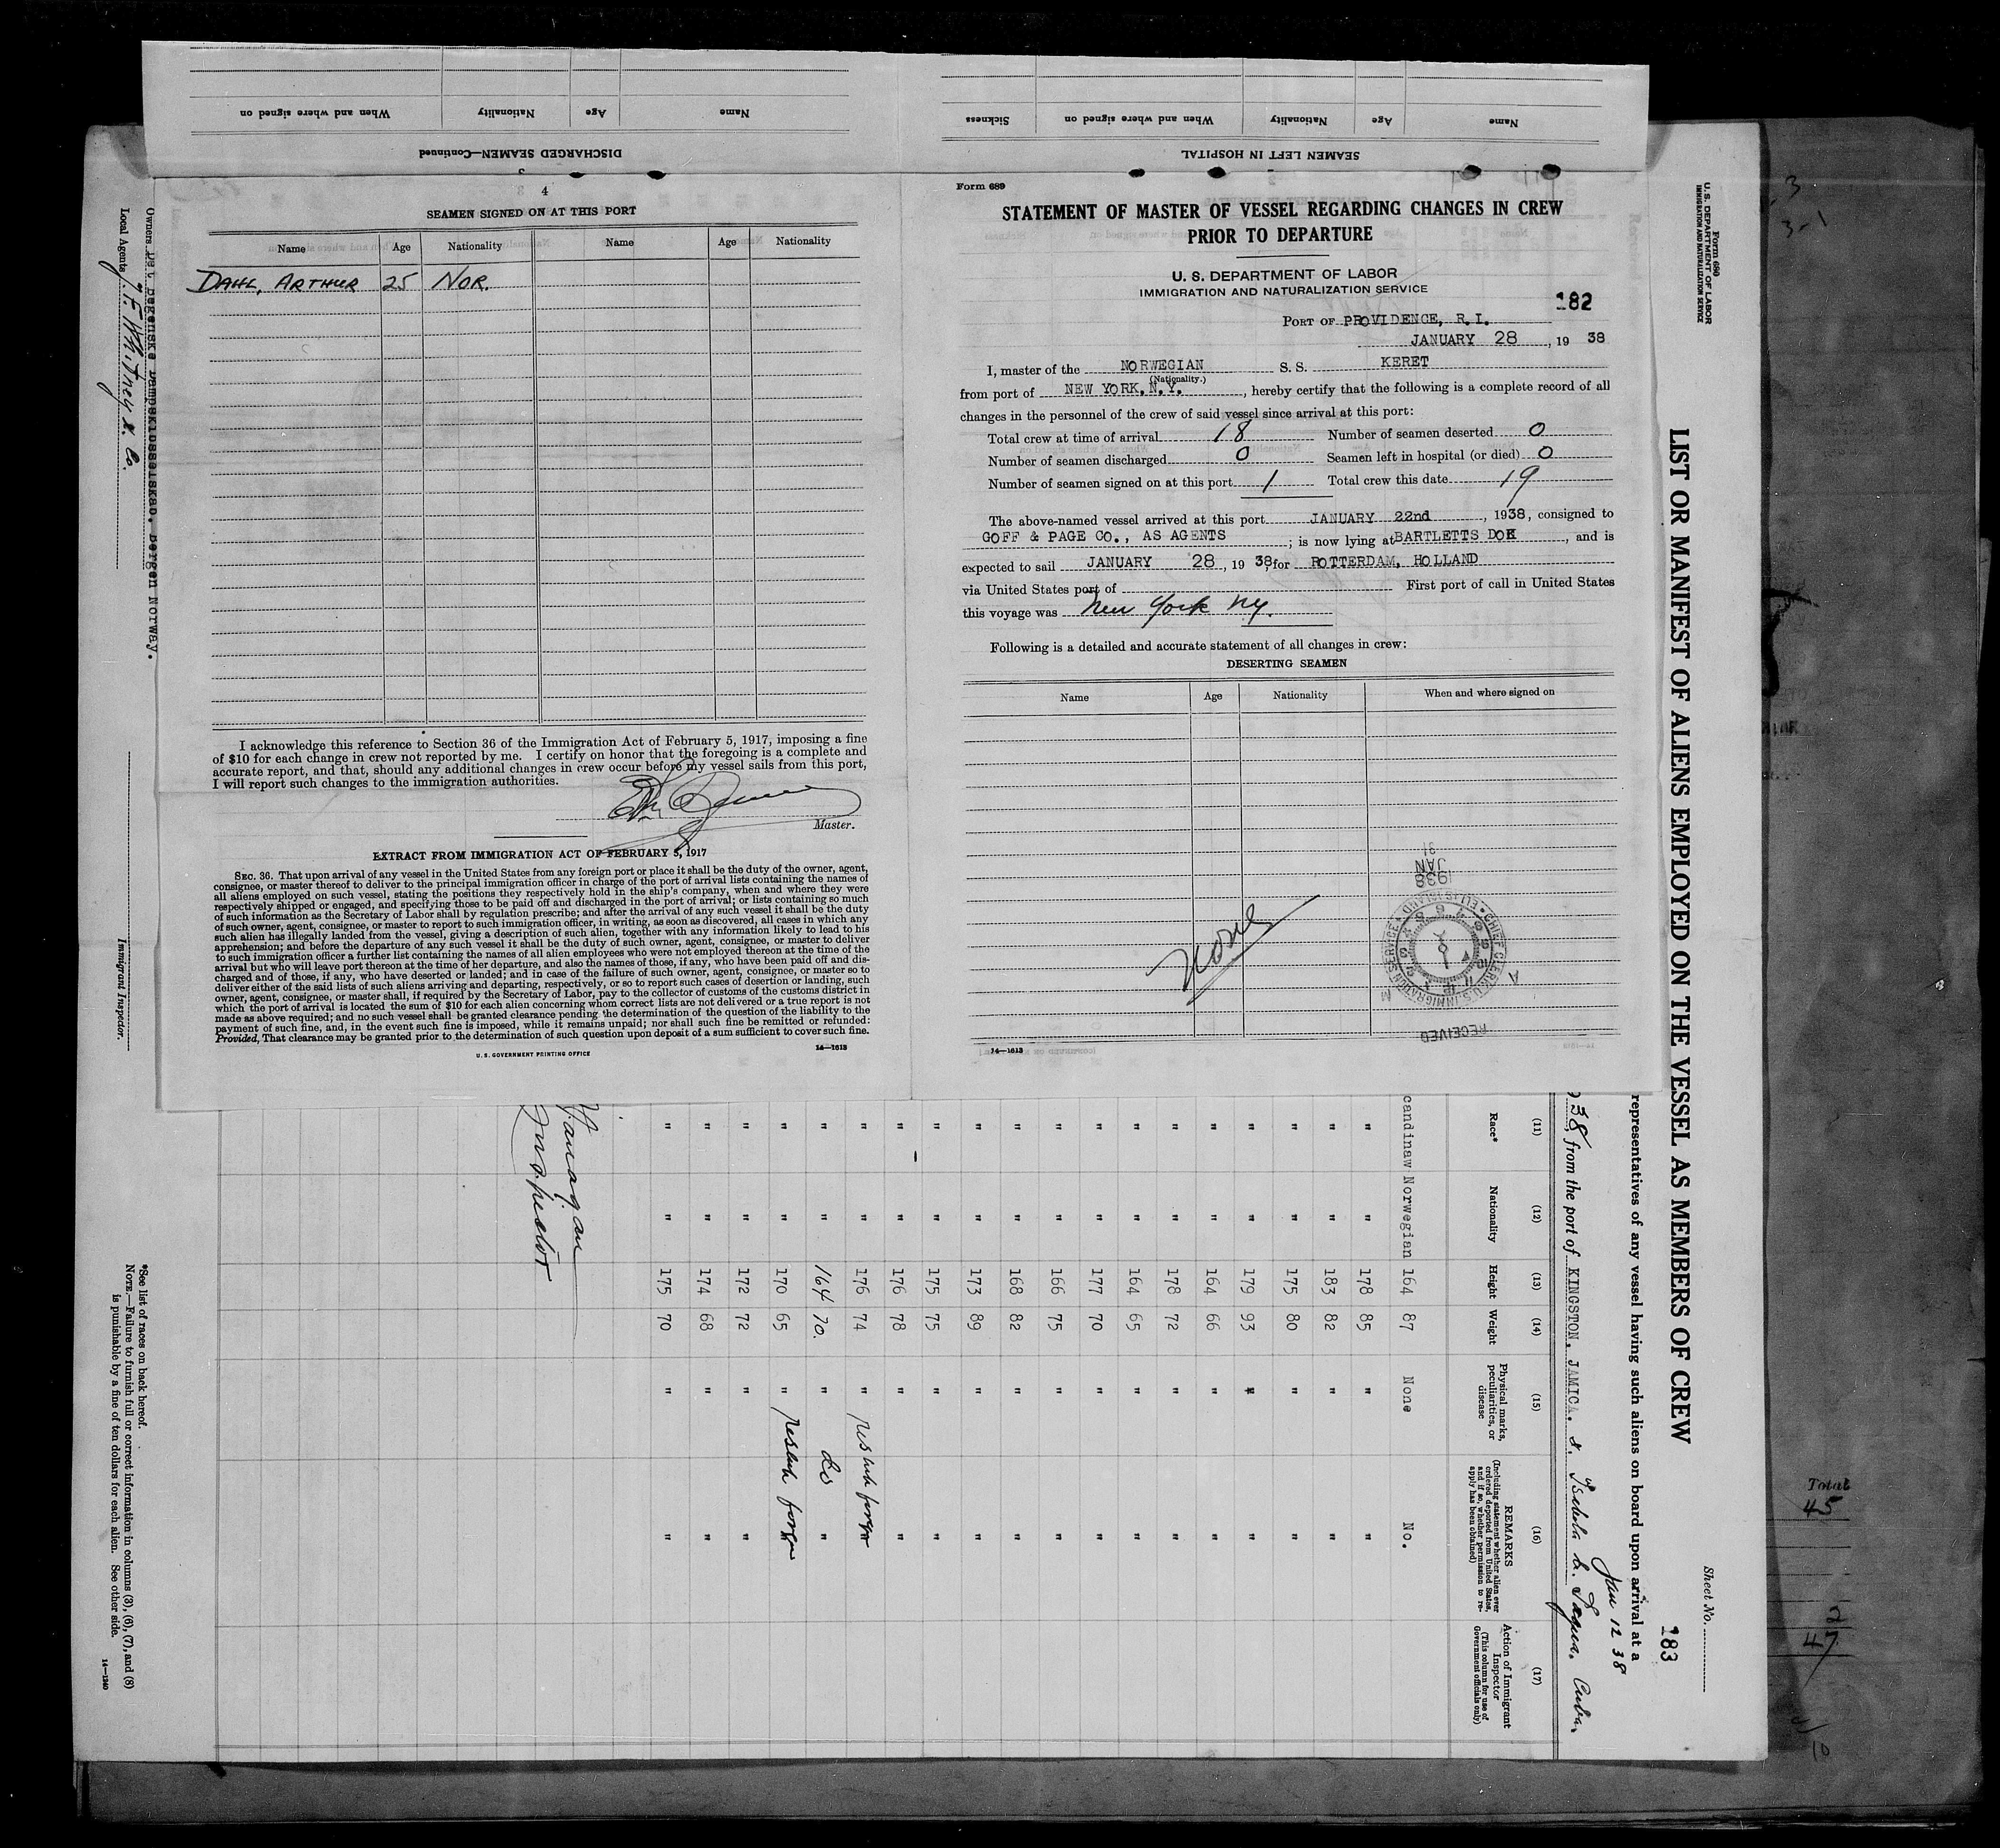 DISCHARGED SEAMEN—Continued
Name Age Nationality When and where signed on
SEAMEN LEFT IN HOSPITAL
Name Age Nationality When and where signed on Sickness
4
SEAMEN SIGNED ON AT THIS PORT
Name Age Nationality Name Age Nationality
DAHL, ARTHUR 25 NOR.
I acknowledge this reference to Section 36 of the Immigration Act of February 5, 1917, imposing a fine
of $10 for each change in crew not reported by me. I certify on honor that the foregoing is a complete and
accurate report, and that, should any additional changes in crew occur before my vessel sails from this port,
I will report such changes to the immigration authorities.
Master.
EXTRACT FROM IMMIGRATION ACT OF FEBRUARY 5, 1917
SEC. 36. That upon arrival of any vessel in the United States from any foreign port or place it shall be the duty of the owner, agent,
consignee, or master thereof to deliver to the principal immigration officer in charge of the port of arrival lists containing the names of
all aliens employed on such vessel, stating the positions they respectively hold in the ship's company, when and where they were
respectively shipped or engaged, and specifying those to be paid off and discharged in the port of arrival; or lists containing so much
of such information as the Secretary of Labor shall by regulation prescribe; and after the arrival of any such vessel it shall be the duty
of such owner, agent, consignee, or master to report to such immigration officer, in writing, as soon as discovered, all cases in which any
such alien has illegally landed from the vessel, giving a description of such alien, together with any information likely to lead to his
apprehension; and before the departure of any such vessel it shall be the duty of such owner, agent, consignee, or master to deliver
to such immigration officer a further list containing the names of all alien employees who were not employed thereon at the time of the
arrival but who will leave port thereon at the time of her departure, and also the names of those, if any, who have been paid off and dis-
charged and of those, if any, who have deserted or landed; and in case of the failure of such owner, agent, consignee, or master so to
deliver either of the said lists of such aliens arriving and departing, respectively, or so to report such cases of desertion or landing, such
owner, agent, consignee, or master shall, if required by the Secretary of Labor, pay to the collector of customs of the customs district in
which the port of arrival is located the sum of $10 for each alien concerning whom correct lists are not delivered or a true report is not
made as above required; and no such vessel shall be granted clearance pending the determination of the question of the liability to the
payment of such fine, and, in the event such fine is imposed, while it remains unpaid; nor shall such fine be remitted or refunded:
Provided, That clearance may be granted prior to the determination of such question upon deposit of a sum sufficient to cover such fine.
U. S. GOVERNMENT PRINTING OFFICE 14—1613
Form 689
STATEMENT OF MASTER OF VESSEL REGARDING CHANGES IN CREW
PRIOR TO DEPARTURE
U. S. DEPARTMENT OF LABOR
IMMIGRATION AND NATURALIZATION SERVICE
182
PORT OF PROVIDENCE, R.I.
JANUARY 28, 19 38
I, master of the NORWEGIAN S. S. KERET
(Nationality.)
from port of NEW YORK, N.Y., hereby certify that the following is a complete record of all
changes in the personnel of the crew of said vessel since arrival at this port:
Total crew at time of arrival 18 Number of seamen deserted 0
Number of seamen discharged 0 Seamen left in hospital (or died) 0
Number of seamen signed on at this port 1 Total crew this date 19
The above-named vessel arrived at this port JANUARY 22nd, 1938, consigned to
GOFF & PAGE CO., AS AGENTS; is now lying at BARTLETTS DOK, and is
expected to sail JANUARY 28, 19 38, for ROTTERDAM, HOLLAND
via United States port of First port of call in United States
this voyage was New York NY.
Following is a detailed and accurate statement of all changes in crew:
DESERTING SEAMEN
Name Age Nationality When and where signed on
None
RECEIVED
CHIEF CLERK U.S. IMMIGRATION SERVICE ELLIS ISLAND
1938 JAN 31
A M
14—1613
Form 680
U. S. DEPARTMENT OF LABOR
IMMIGRATION AND NATURALIZATION SERVICE
Sheet No.
LIST OR MANIFEST OF ALIENS EMPLOYED ON THE VESSEL AS MEMBERS OF CREW
183
representatives of any vessel having such aliens on board upon arrival at a
Jan 12 38
38, from the port of KINGSTON, JAMICA. &. Isabela d. Sagua. Cuba.
(11) (12) (13) (14) (15) (16) (17)
Race* Nationality Height Weight Physical marks, peculiarities, or disease REMARKS (Including statement whether alien ever ordered deported from United States, and if so, whether permission to re-apply has been obtained) Action of Immigrant Inspector (This column for use of Government officials only)
candinaw Norwegian 164 87 None No.
" " 178 85 " "
" " 183 82 " "
" " 175 80 " "
" " 179 93 " "
" " 164 66 " "
" " 178 72 " "
" " 164 65 " "
" " 177 70 " "
" " 166 75 " "
" " 168 82 " "
" " 173 89 " "
" " 175 75 " "
" " 176 78 " "
" " 176 74 " "
" " 164 70. " do "
" " 170 65 " "
" " 172 72 " "
" " 174 68 " "
" " 175 70 " "
Inspector
Immigrant Inspector.
Owners Det Bergenske Dampskibsselskab. Bergen Norway.
Local Agents J. F. Whitney & Co.
*See list of races on back hereof.
NOTE.—Failure to furnish full or correct information in columns (3), (6), (7), and (8)
is punishable by a fine of ten dollars for each alien. See other side.
14—1240
3
3-1
Total
45
2
47
10